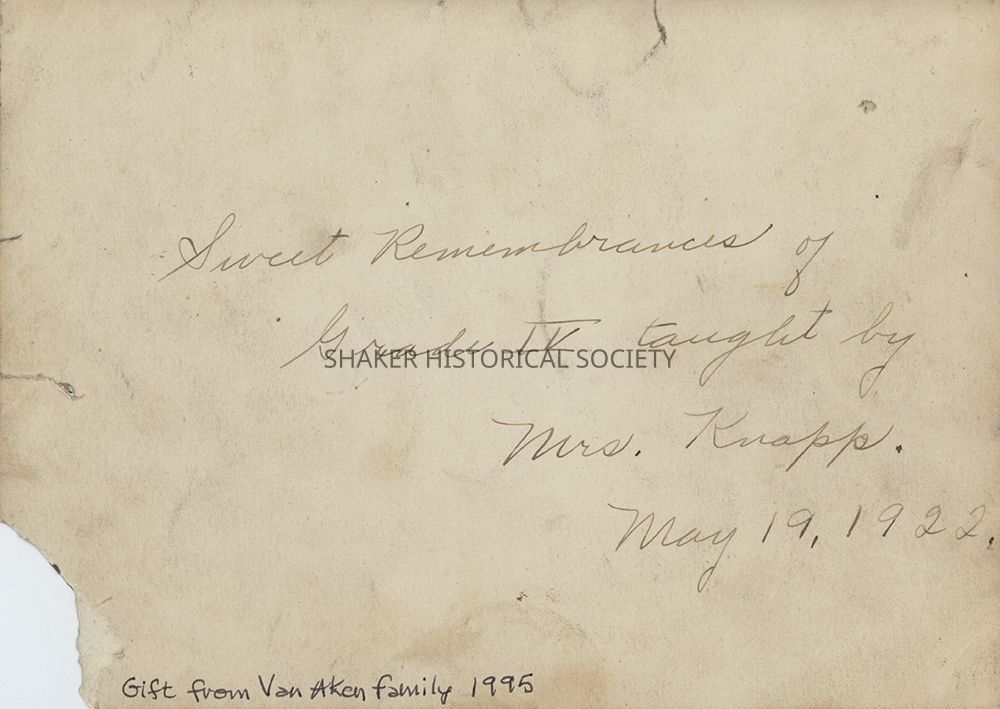 Sweet Remembrances of
Grade IV taught by
SHAKER HISTORICAL SOCIETY
Mrs. Knapp.
May 19, 1922.
Gift from Van Aken family 1995